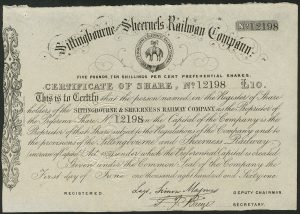 Nº 12198
Sittingbourne and Sheerness Railway Company.
FIVE POUNDS, TEN SHILLINGS PER CENT PREFERENTIAL SHARES.
CERTIFICATE OF SHARE, Nº 12198 £10.
This is to Certify that the person named in the Register of Share
holders of the SITTINGBOURNE & SHEERNESS RAILWAY COMPANY as the Proprietor of
the Preference Share Nº 12198 in the Capital of the Company is the
Proprietor of that Share subject to the Regulations of the Company and to
the provisions of the Sittingbourne and Sheerness Railway
Given under the Common Seal of the Company the
First day of June one thousand eight hundred and Sixty one
REGISTERED.
DEPUTY CHAIRMAN.
SECRETARY.